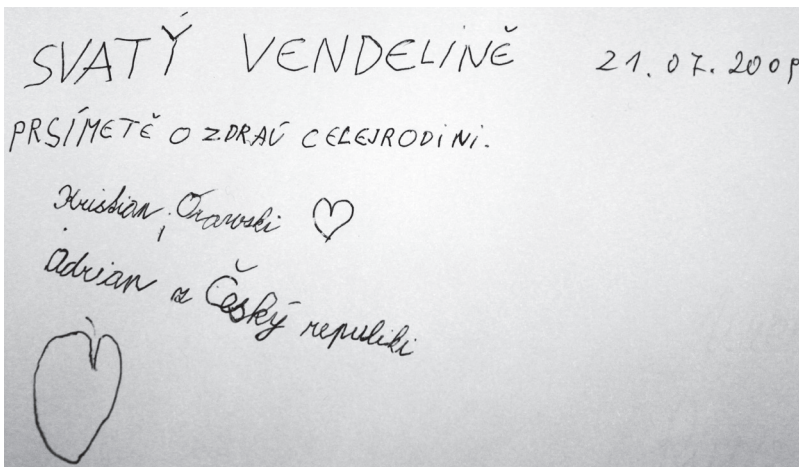 SVATÝ VENDELINĚ 21.07.2009
PRSÍMETĚ O ZDRAÚ CELEJRODINI.
Kristian, Oravski
Adrian z Český repuliki